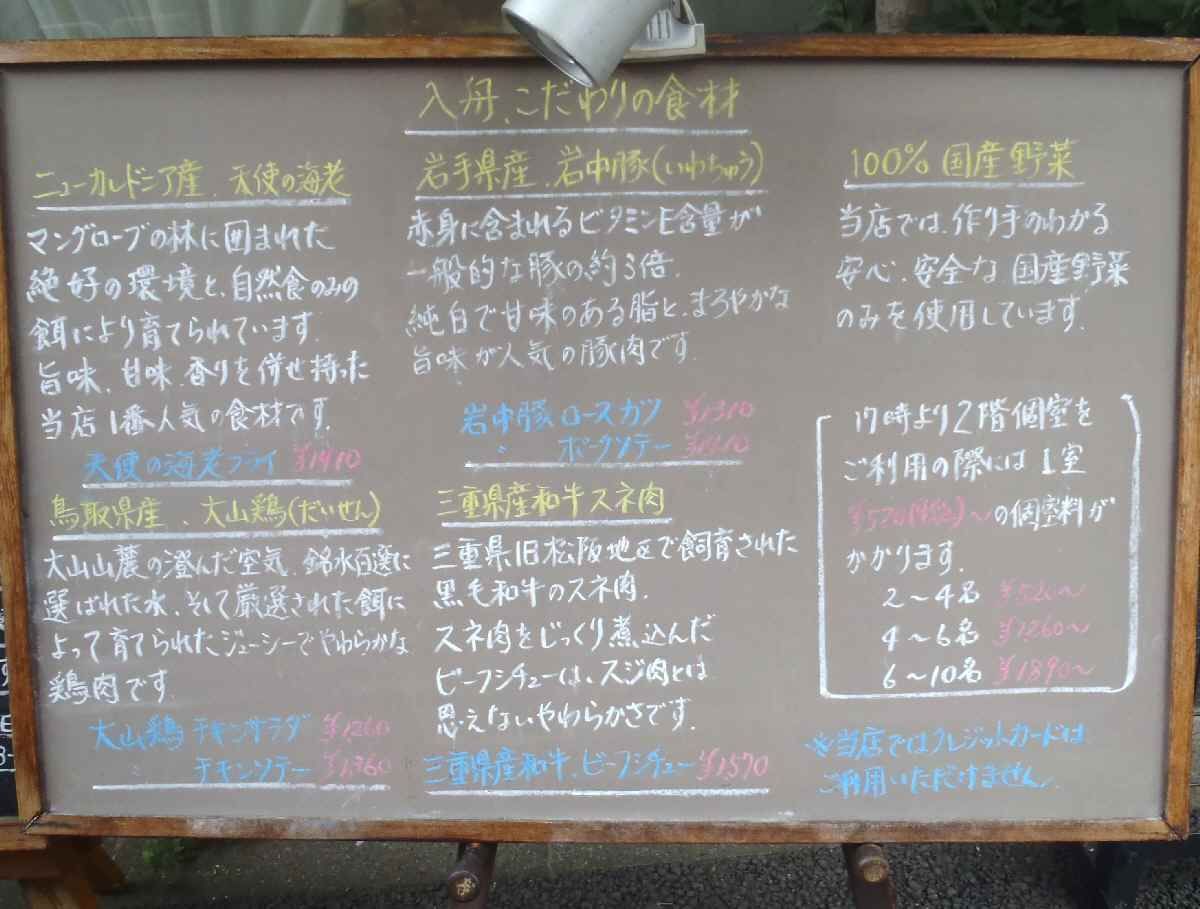 入舟、こだわりの食材
ニューカルドニア産、天使の海老
マングローブの林に囲まれた
絶好の環境と、自然食のみの
餌により育てられています。
旨味、甘味、香りを併せ持った
当店1番人気の食材です。
天使の海老フライ ¥1410
鳥取県産、大山鶏(だいせん)
大山山麓の澄んだ空気、銘水百選に
選ばれた水、そして厳選された餌に
よって育てられたジューシーでやわらかな
鶏肉です
大山鶏 チキンサラダ ¥1260
〃 チキンソテー ¥1,360
岩手県産、岩中豚(いわちゅう)
赤身に含まれるビタミンE含量が
一般的な豚の、約3倍.
純白で甘味のある脂と、まろやかな
旨味が人気の豚肉です.
岩中豚 ロースカツ ¥1310
〃 ポークソテー
三重県産和牛スネ肉
三重県旧松阪地区で飼育された
黒毛和牛のスネ肉.
スネ肉をじっくり煮込んだ
ビーフシチューは、スジ肉とは
思えないやわらかさです.
三重県産和牛、ビーフシチュー ¥1,570
100% 国産野菜
当店では、作り手のわかる
安心、安全な国産野菜
のみを使用しています.
17時より2階個室を
ご利用の際には1室
¥520 〜の個室料が
かかります.
2〜4名 ¥520〜
4〜6名 ¥1260〜
6〜10名 ¥1890〜
※当店ではクレジットカードは
ご利用いただけません.